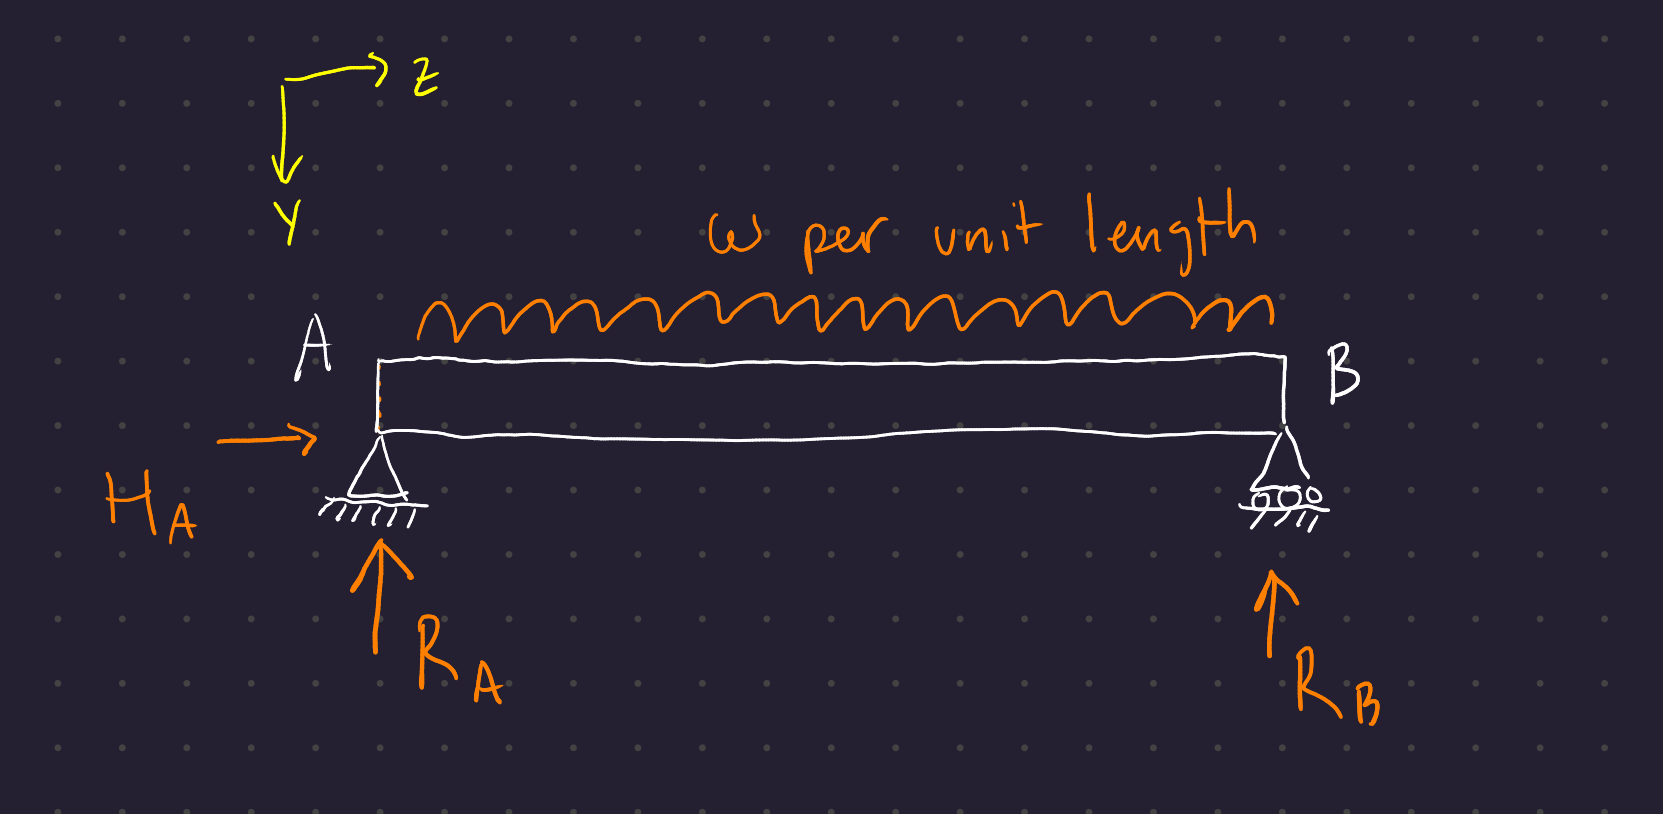 Z
Y
ω per unit length
A
B
H_A
R_A
R_B